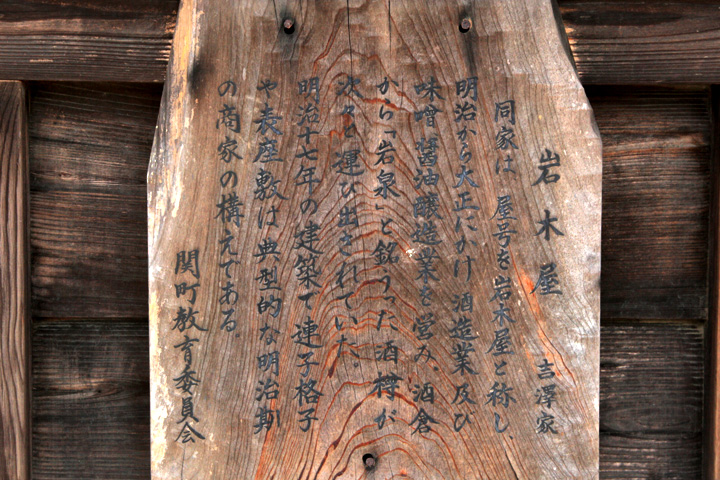 岩木屋 吉澤家
同家は 屋号を岩木屋と称し
明治から大正にかけ 酒造業及び
味噌醤油醸造業を営み、酒倉
から「岩泉」と銘うった酒樽が
次々と運び出されていた。
明治十七年の建築で連子格子
や表座敷は典型的な明治期
の商家の構えである。
関町教育委員会